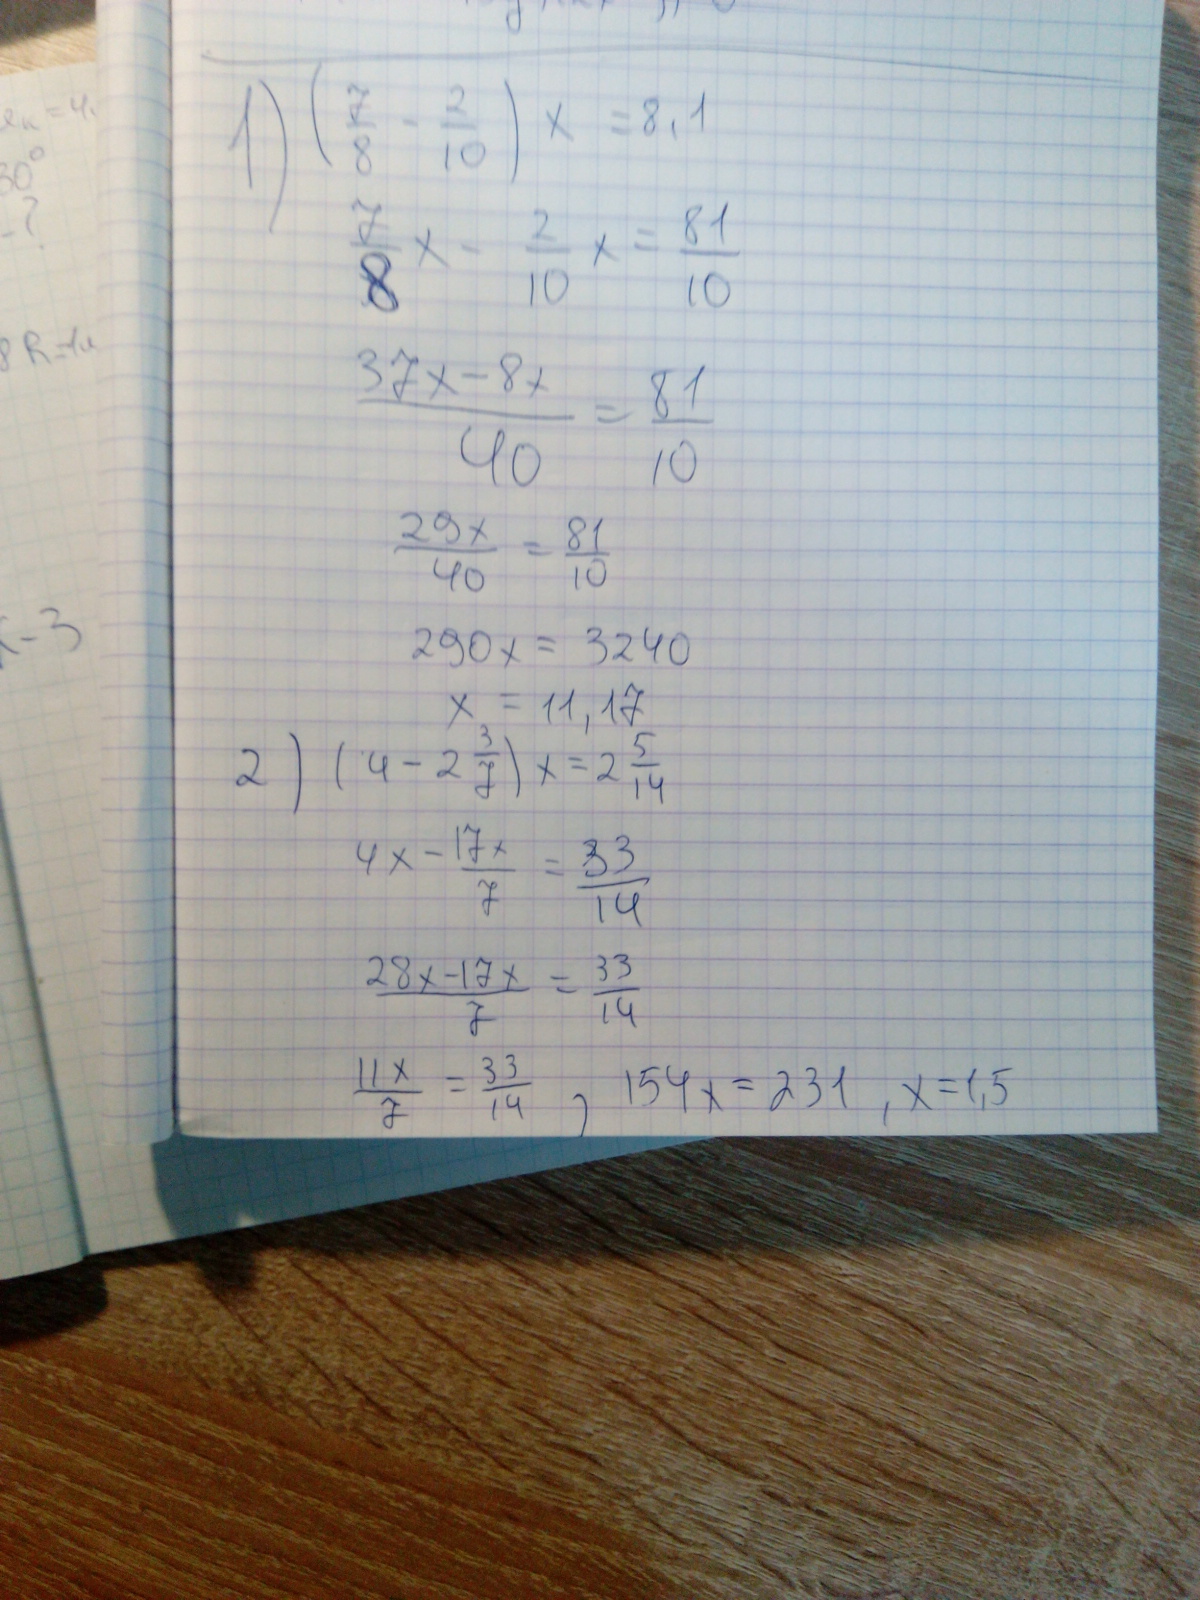 1) (7/8 - 2/10) x = 8,1
7/8 x - 2/10 x = 81/10
37x - 8x / 40 = 81/10
29x/40 = 81/10
290x = 3240
x = 11,17
2) (4 - 2 3/7) x = 2 5/14
4x - 17x/7 = 33/14
28x - 17x / 7 = 33/14
11x/7 = 33/14 , 154x = 231 , x = 1,5
30°
- ?
x - 3